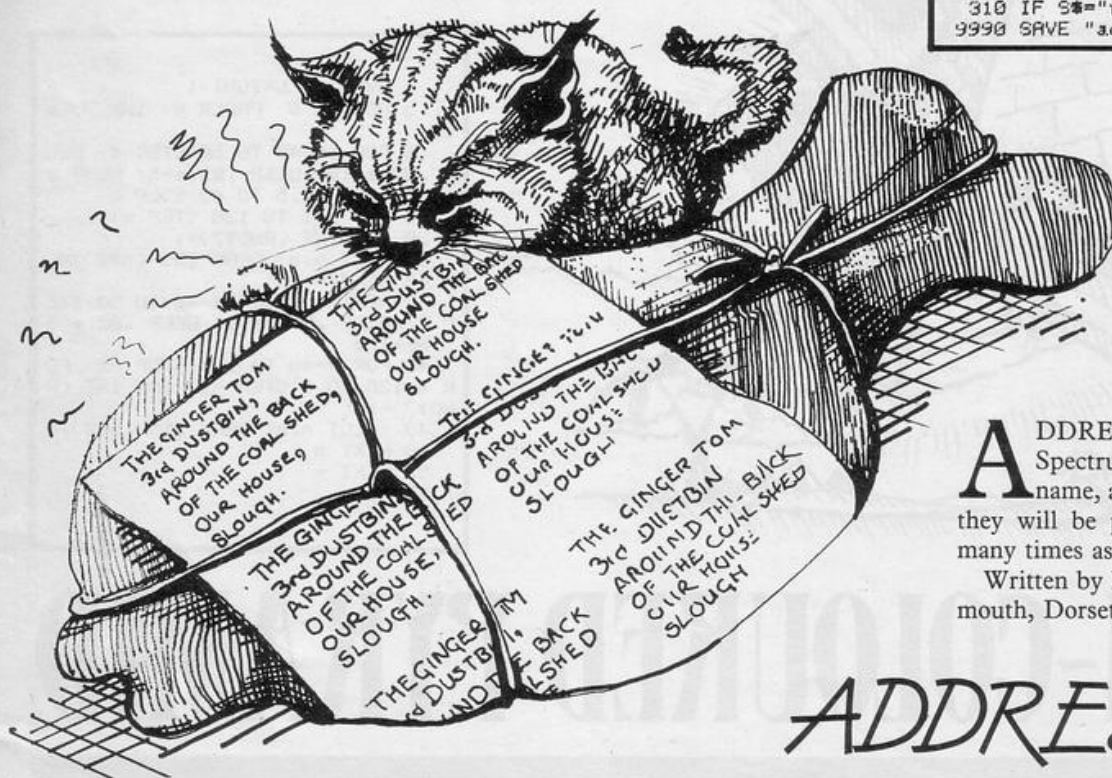 310 IF S$="
9990 SAVE "a
THE GIN
3rd DUSTBIN
AROUND THE BAC
OF THE COAL SHED
OUR HOUSE
SLOUGH.
THE GINGER TOM
3rd DUSTBIN,
AROUND THE BACK
OF THE COAL SHED,
OUR HOUSE,
SLOUGH.
THE GINGER TOM
3rd DUSTBIN
AROUND THE BACK
OF THE COALSHED
OUR HOUSE
SLOUGH
THE GINGE
3rd DUSTBIN
AROUND THE B CK
OF THE COAL ED
OUR HOUSE,
SLOUGH.
THE GINGER TOM
3rd DUSTBIN
AROUND THE BACK
OF THE COAL SHED
OUR HOUSE
SLOUGH
THE GINGER TM
d DUSTBI,
UND E BACK
LSHED
ADDRE
Spectru
name, a
they will be p
many times as
Written by
mouth, Dorset
ADDRE
-COLOURED